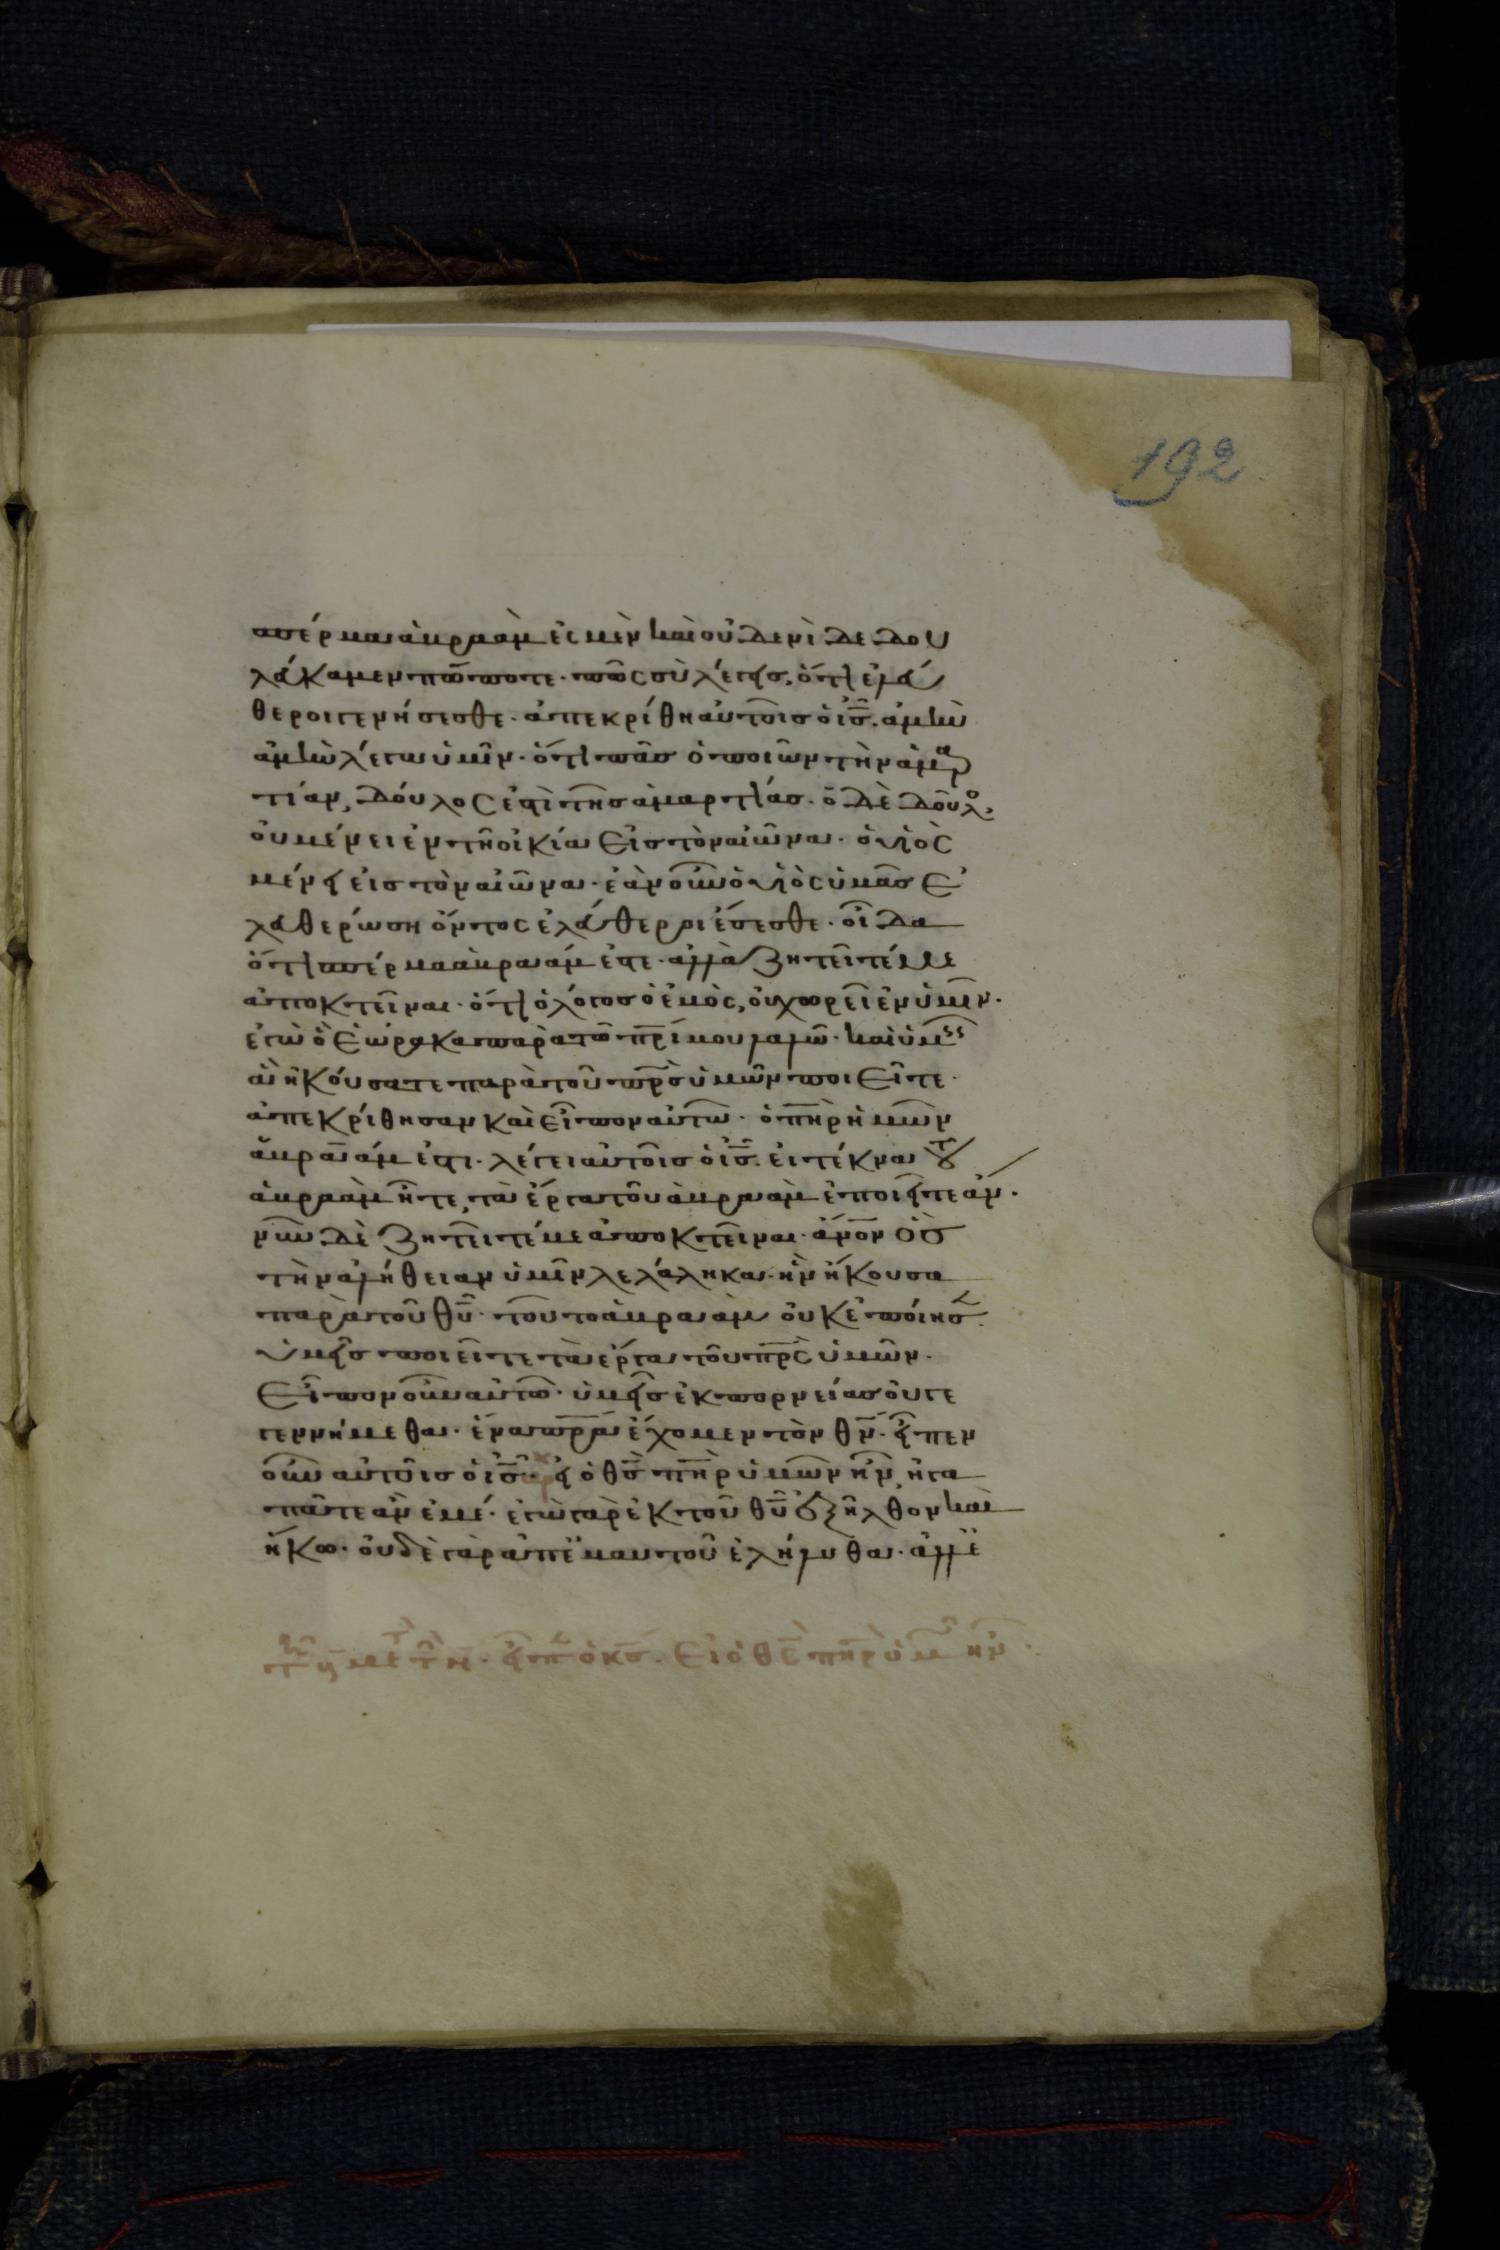 192
σπέρμα ἀβραάμ ἐσμὲν καὶ οὐδενὶ δεδου
λεύκαμεν πώποτε· πῶς σὺ λέγεις, ὅτι ἐλεύ
θεροι γενήσεσθε· ἀπεκρίθη αὐτοῖς ὁ ις̅· ἀμὴν
ἀμὴν λέγω ὑμῖν· ὅτι πᾶς ὁ ποιῶν τὴν ἁμαρ
τίαν, δοῦλος ἐστὶ τῆς ἁμαρτίας· ὁ δὲ δοῦλο
οὐ μένει ἐν τῇ οἰκία εἰς τὸν αἰῶνα· ὁ υἱὸς
μένει εἰς τὸν αἰῶνα· ἐὰν οὖν ὁ υἱὸς ὑμᾶς ἐ
λευθερώση ὄντος ἐλεύθεροι ἔσεσθε· οἶδα
ὅτι σπέρμα ἀβραάμ ἐστε· ἀλλὰ ζητεῖτέ με
ἀποκτεῖναι· ὅτι ὁ λόγος ὁ ἐμὸς, οὐ χωρεῖ ἐν ὑμῖν·
ἐγὼ ὃ ἑώρακα παρὰ τῶ πρι̅ μου λαλῶ· καὶ ὑμεῖς
ἃ ἠκούσατε παρὰ τοῦ πρ̅ς ὑμῶν ποιεῖτε·
ἀπεκρίθησαν καὶ εἶπον αὐτῶ· ὁ πη̅ρ ἡμῶν
ἀβραάμ ἐστι· λέγει αὐτοῖς ὁ ις̅· εἰ τέκνα τοῦ
ἀβραὰμ ἦτε, τὰ ἔργα τοῦ ἀβραὰμ ἐποιεῖτε ἄν·
νῦν δὲ ζητεῖτέ με ἀποκτεῖναι· ἄνο̅ν ὃς
τὴν ἀλήθειαν ὑμῖν λελάληκα· ἣν ἤκουσα
παρὰ τοῦ θυ̅· τοῦτο ἀβραὰμ οὐκ ἐποίησ
ὑμεῖς ποιεῖτε τὰ ἔργα τοῦ πρ̅ς ὑμῶν·
εἶπον οὖν αὐτῶ· ὑμεῖς ἐκ πορνείας οὐ γε
γεννήμεθα· ἕνα πρ̅α ἔχομεν τὸν θν̅· εἶπεν
οὖν αὐτοῖς ὁ ις̅· εἰ ὁ θς̅ πη̅ρ ὑμῶν ἦν, ἠγα
πᾶτε ἂν ἐμέ· ἐγὼ γὰρ ἐκ τοῦ θυ̅ ἐξῆλθον καὶ
ἥκω· οὐδὲ γὰρ ἀπ' ἐμαυτοῦ ἐλήλυθα· ἀλλ' ἐ
εἶπ ὁ κς̅· εἰ ὁ θς̅ πη̅ρ ὑμ ἦν·